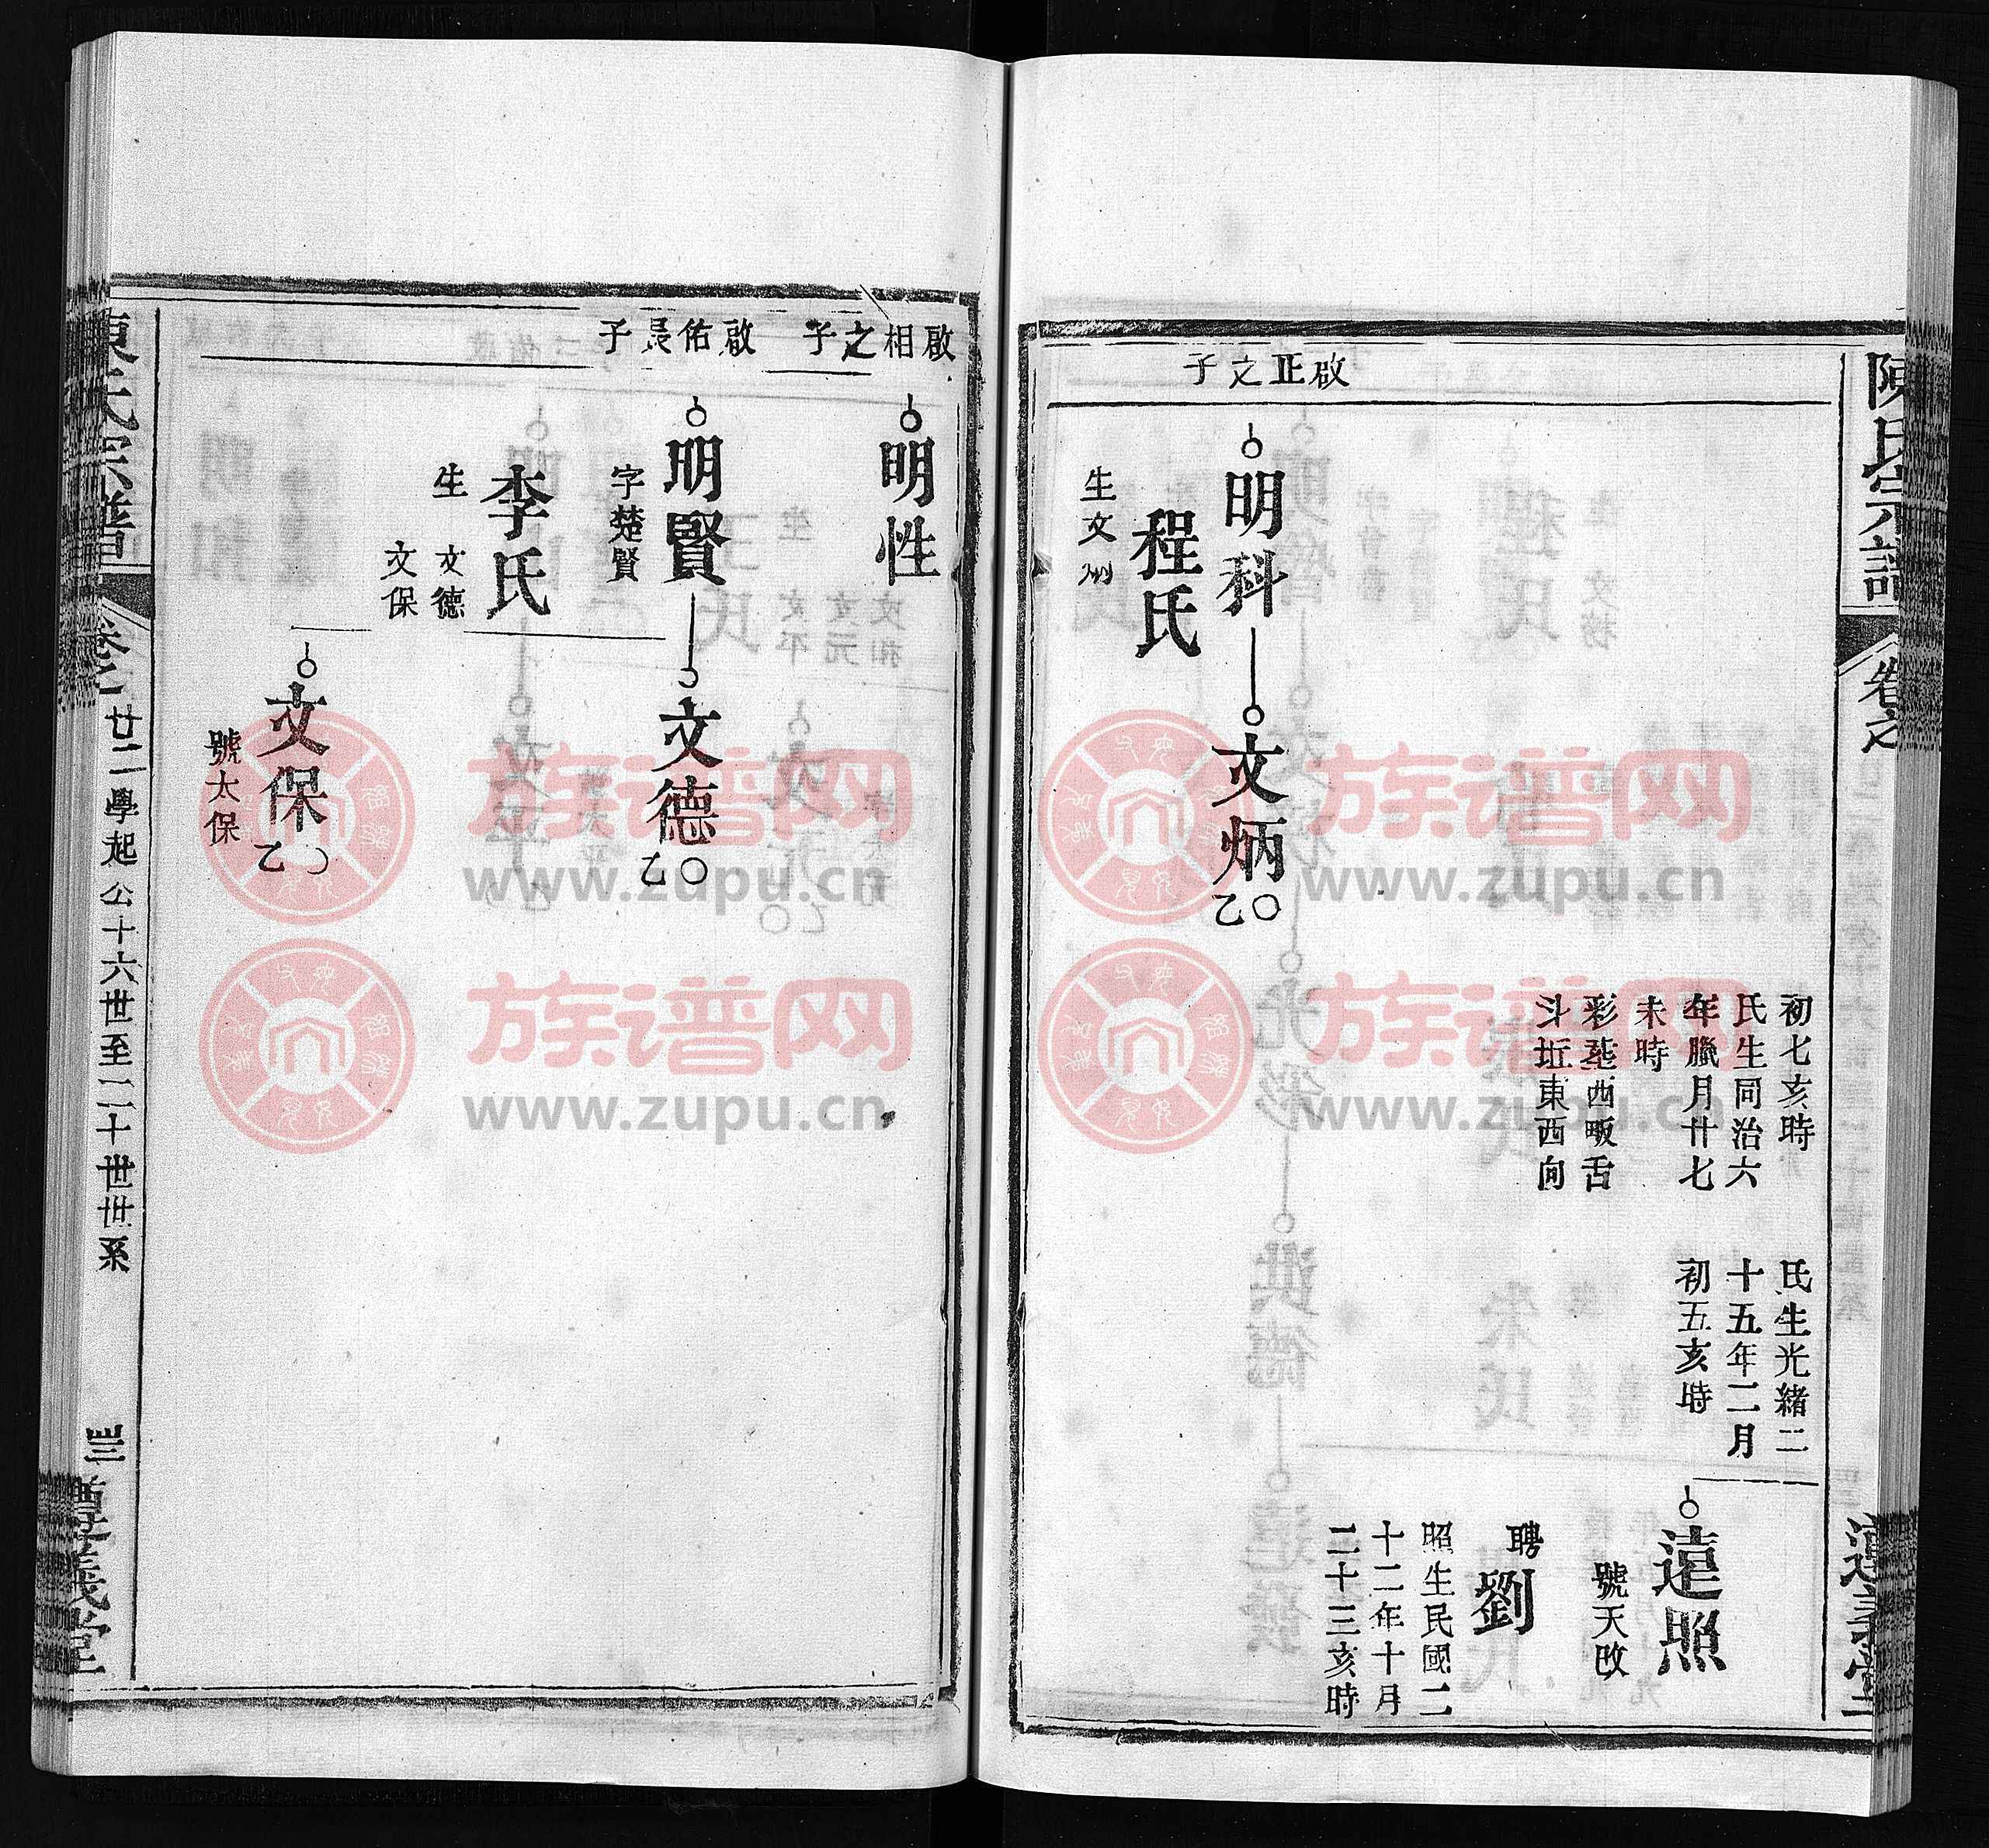 陳氏宗譜
卷之
遵義堂
初七亥時
氏生同治六
年臘月廿七
未時
彩塟西畈舌
斗坵東西向
氏生光緒二
十五年二月
初五亥時
遠照
號天啟
聘
劉
照生民國二
十二年十月
二十三亥時
啟正之子
明科
程氏
生文炳
文炳
乙〇
啟相之子
明性
啟佑長子
明賢
字楚賢
李氏
生
文德
文保
文德
乙〇
文保
乙〇
號太保
陳氏宗譜
卷二
廿二學起公十六世至二十世世系
遵義堂
族谱网
www.zupu.cn
族谱网
www.zupu.cn
族谱网
www.zupu.cn
族谱网
www.zupu.cn